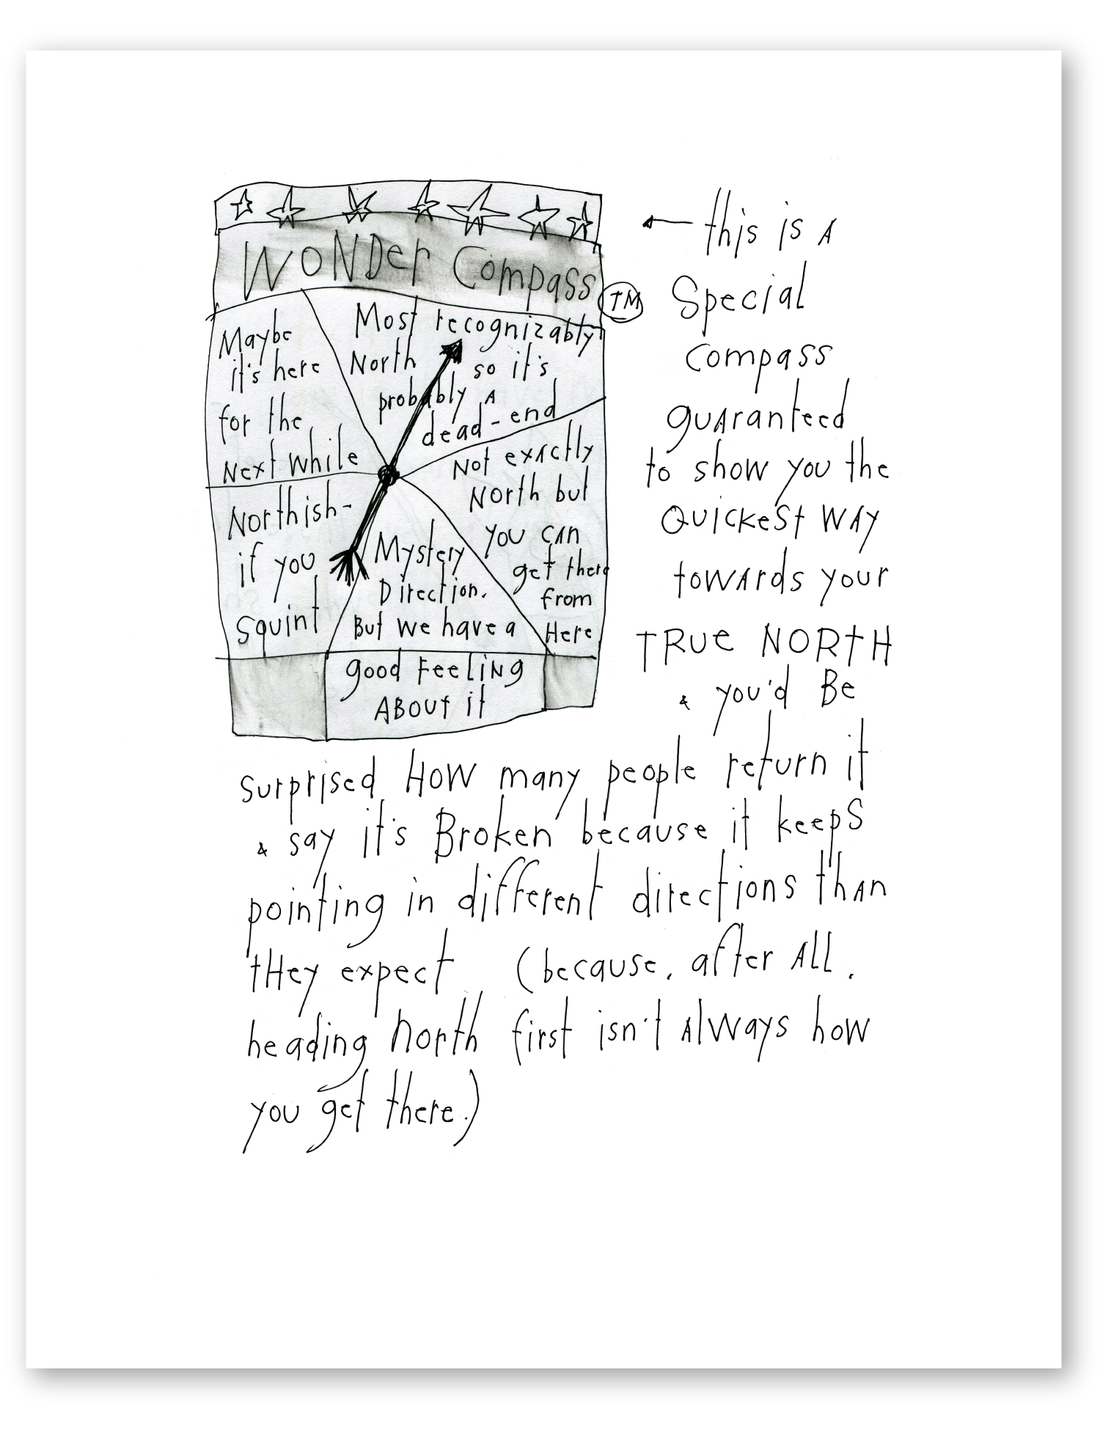 Wonder Compass
TM
Maybe
it's here
for the
Next while
Most recognizably
North so it's
probably a
dead-end
Not exactly
North but
you can
get there
from
Here
Mystery
Direction.
But we have a
good feeling
About it
Northish-
if you
squint
this is a
Special
compass
guaranteed
to show you the
Quickest way
towards your
TRUE NORTH
& you'd Be
surprised How many people return it
& say it's Broken because it keeps
pointing in different directions than
they expect (because, after all,
heading north first isn't always how
you get there.)